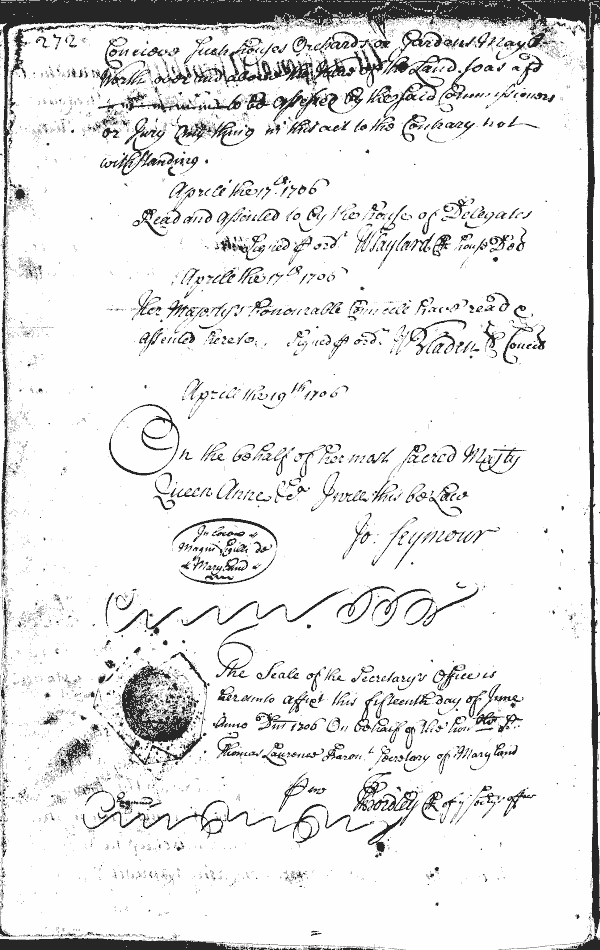 272
Conceive Such houses Orchards or Gardens May be
Worth over and above the Value of the Land so as afd
to be assessed by the said Commissioners
or Jury Any thing in this act to the Contrary not
withstanding.
Aprill the 17th 1706
Read and assented to by the house of Delegates
Signed p ord W Taylard Cl house Del
Aprill the 17th 1706
Her Majestys honourable Councill have read &
assented hereto. Signed p ord. W Bladen Cl Concil
Aprill the 19th 1706
On the behalf of her most Sacred Majty
Queen Anne &c I will this be Law
Jo: Seymour
In Locus
Magni Sigilli de
Maryland
The Seale of the Secretary's Office is
hereunto affixt this fifteenth day of June
Anno Dni 1706 On behalf of the honble Sr
Thomas Laurence Baront Secretary of Maryland
p me T Bordley Cl of ye Secrys office